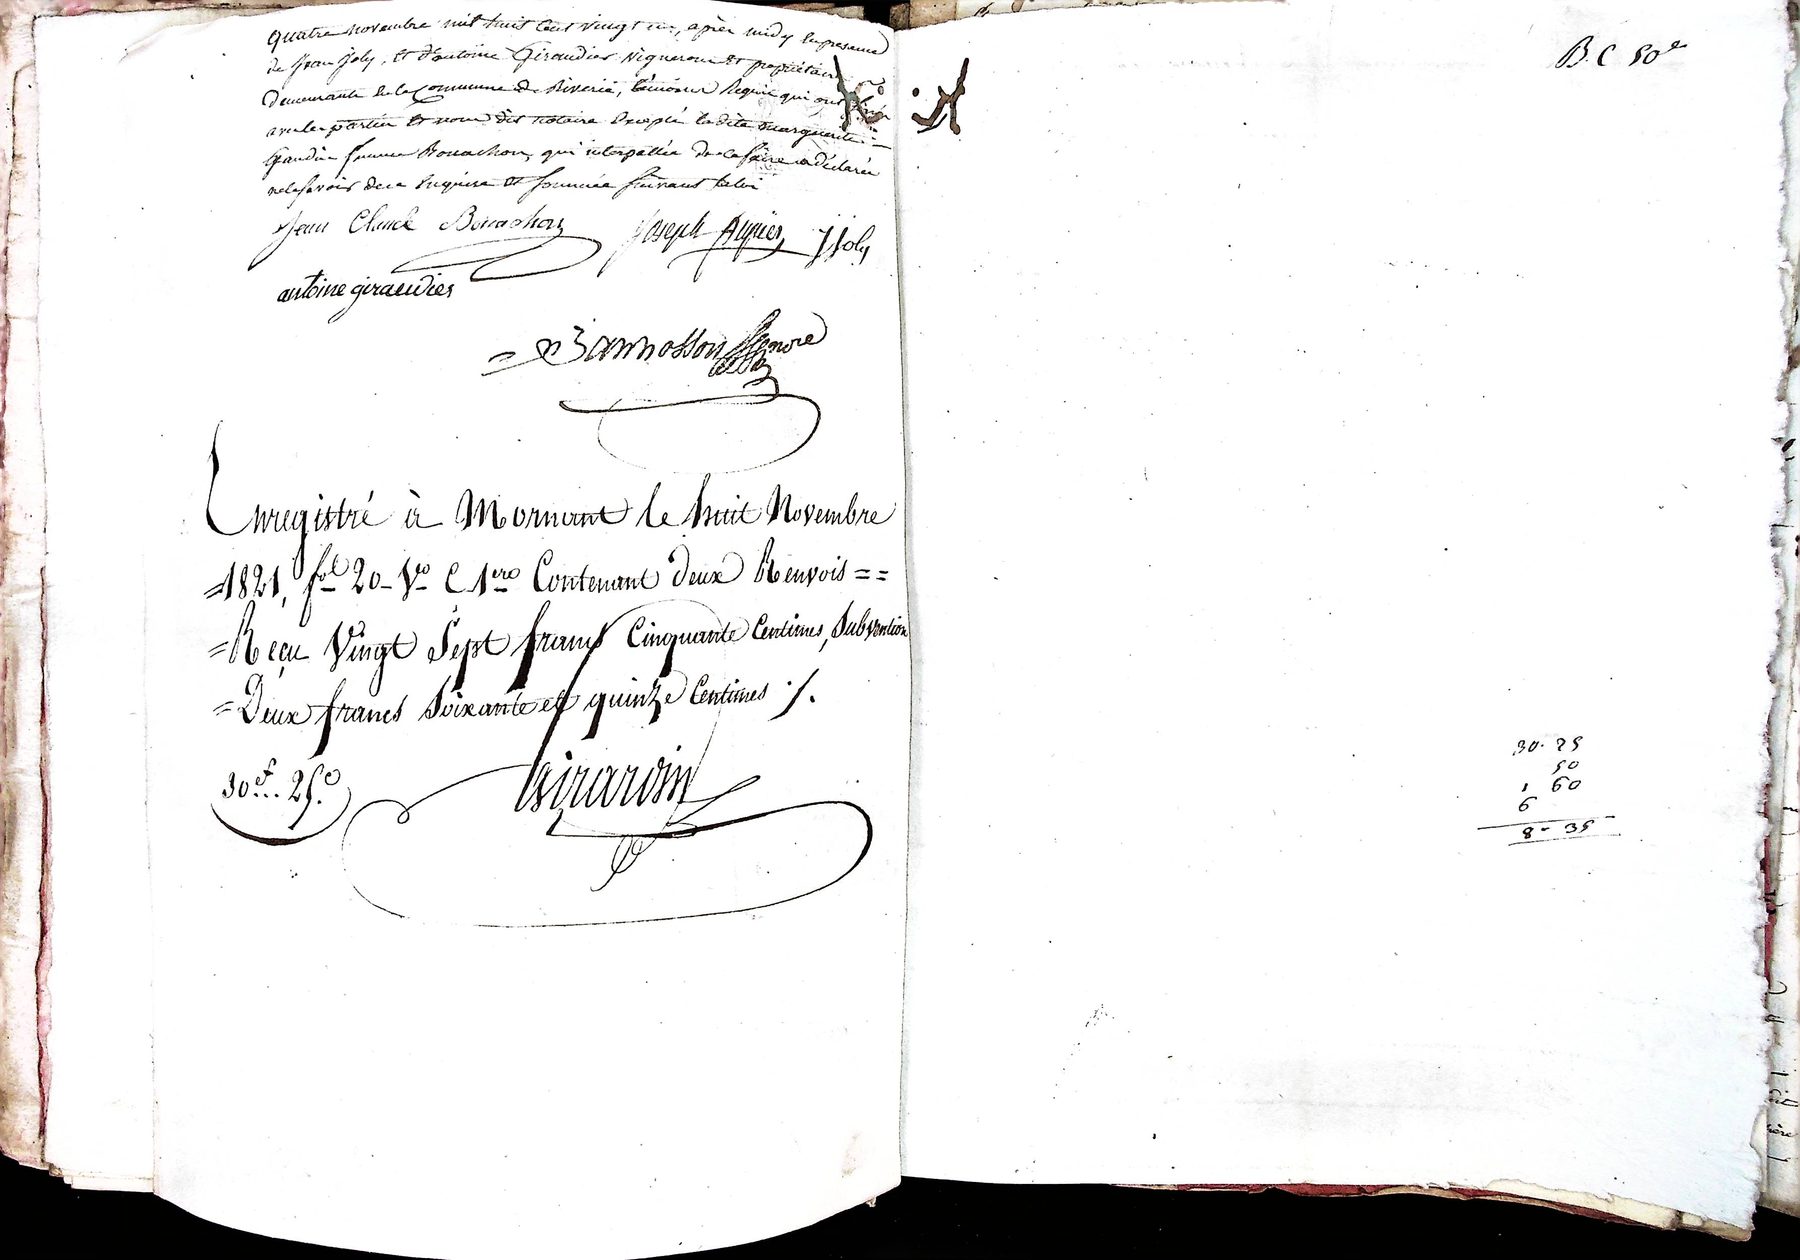 quatre novembre mil huit cent vingt un, après midy en presence
de Jean Joly, et d'antoine Giraudier vignerons et propriétaires
demeurants en la Commune de Riverie, témoins Requis qui ont signé
avec les parties et nous dit notaire Excepté la dite marguerite
femme Bonnachon, qui interpellée de le faire a déclaré
ne le savoir de ce Enquise et sommée suivant la loi
Jean Claude Bonnachon Joseph JJoly
antoine giraudier
Enregistré à Mornant le huit Novembre
=1821, fol 20 Vo C 1ere Contenant deux Renvois ==
=Reçu Vingt Sept francs Cinquante Centimes, Subvention
=Deux francs Soixante et quinze Centimes ./.
30f.. 25c. Girardin
B.C 50e
30. 25
50
1 60
6
8- 35